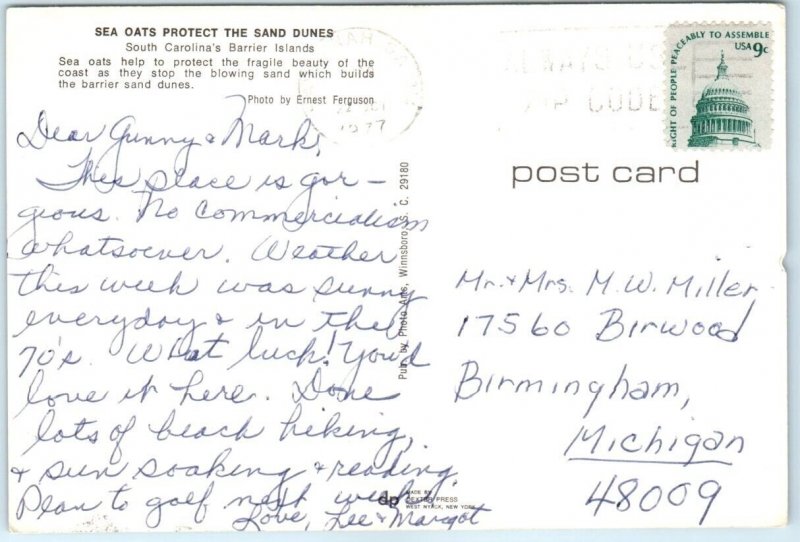 SEA OATS PROTECT THE SAND DUNES
South Carolina's Barrier Islands
Sea oats help to protect the fragile beauty of the
coast as they stop the blowing sand which builds
the barrier sand dunes.
Photo by Ernest Ferguson
1977
ALWAYS USE
ZIP CODE
RIGHT OF PEOPLE PEACEABLY TO ASSEMBLE
USA 9c
post card
Dear Gunny & Mark,
This place is gor-
gious. No commercialism
whatsoever. Weather
this week was sunny
everyday & in the
70's. What luck! You'd
love it here. Done
lots of beach hiking,
& sun soaking & reading.
Plan to golf next week.
Love, Lee & Margot
Pub. by Photo Arts, Winnsboro, S. C. 29180
Mr. & Mrs. M. W. Miller
17560 Birwood
Birmingham,
Michigan
48009
dp
MADE BY
DEXTER PRESS
WEST NYACK, NEW YORK